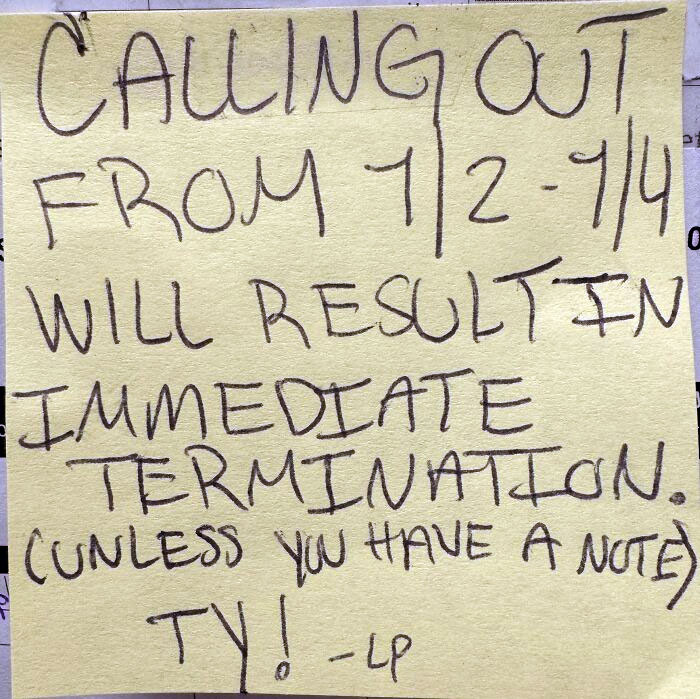 CALLING OUT
FROM 7/2-7/4
WILL RESULT IN
IMMEDIATE
TERMINATION.
(UNLESS YOU HAVE A NOTE)
TY! -LP